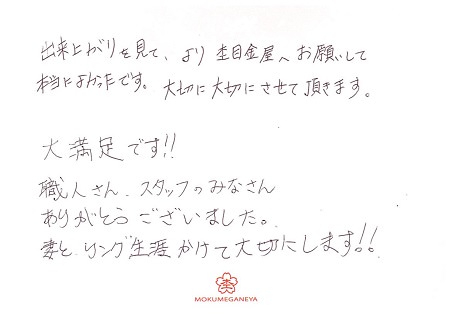 出来上がりを見て、より 杢目金屋へお願いして
本当によかったです。 大切に大切にさせて頂きます。
大満足です!!
職人さん、スタッフのみなさん
ありがとうございました。
妻と、リング生涯かけて大切にします!!
杢
MOKUMEGANEYA